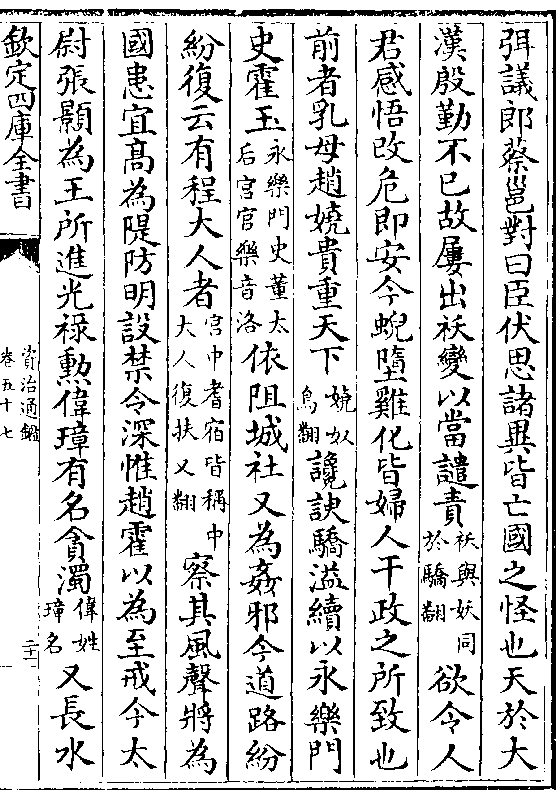 弭議郎蔡邕對曰臣伏思諸異皆亡國之怪也天於大
漢殷勤不已故屢出祅變以當譴責祅與妖同於驕翻欲令人
君感悟改危即安今蜺墮雞化皆婦人干政之所致也
前者乳母趙嬈貴重天下嬈奴鳥翻讒諛驕溢續以永樂門
史霍玉永樂門史董太后宮官樂音洛依阻城社又為姦邪今道路紛
紛復云有程大人者宮中耆宿皆稱中大人復扶又翻察其風聲將為
國患宜髙為隄防明設禁令深惟趙霍以為至戒今太
尉張顥為王所進光禄勲偉璋有名貪濁偉姓璋名又長水
欽定四庫全書
資治通鑑
卷五十七
二十一